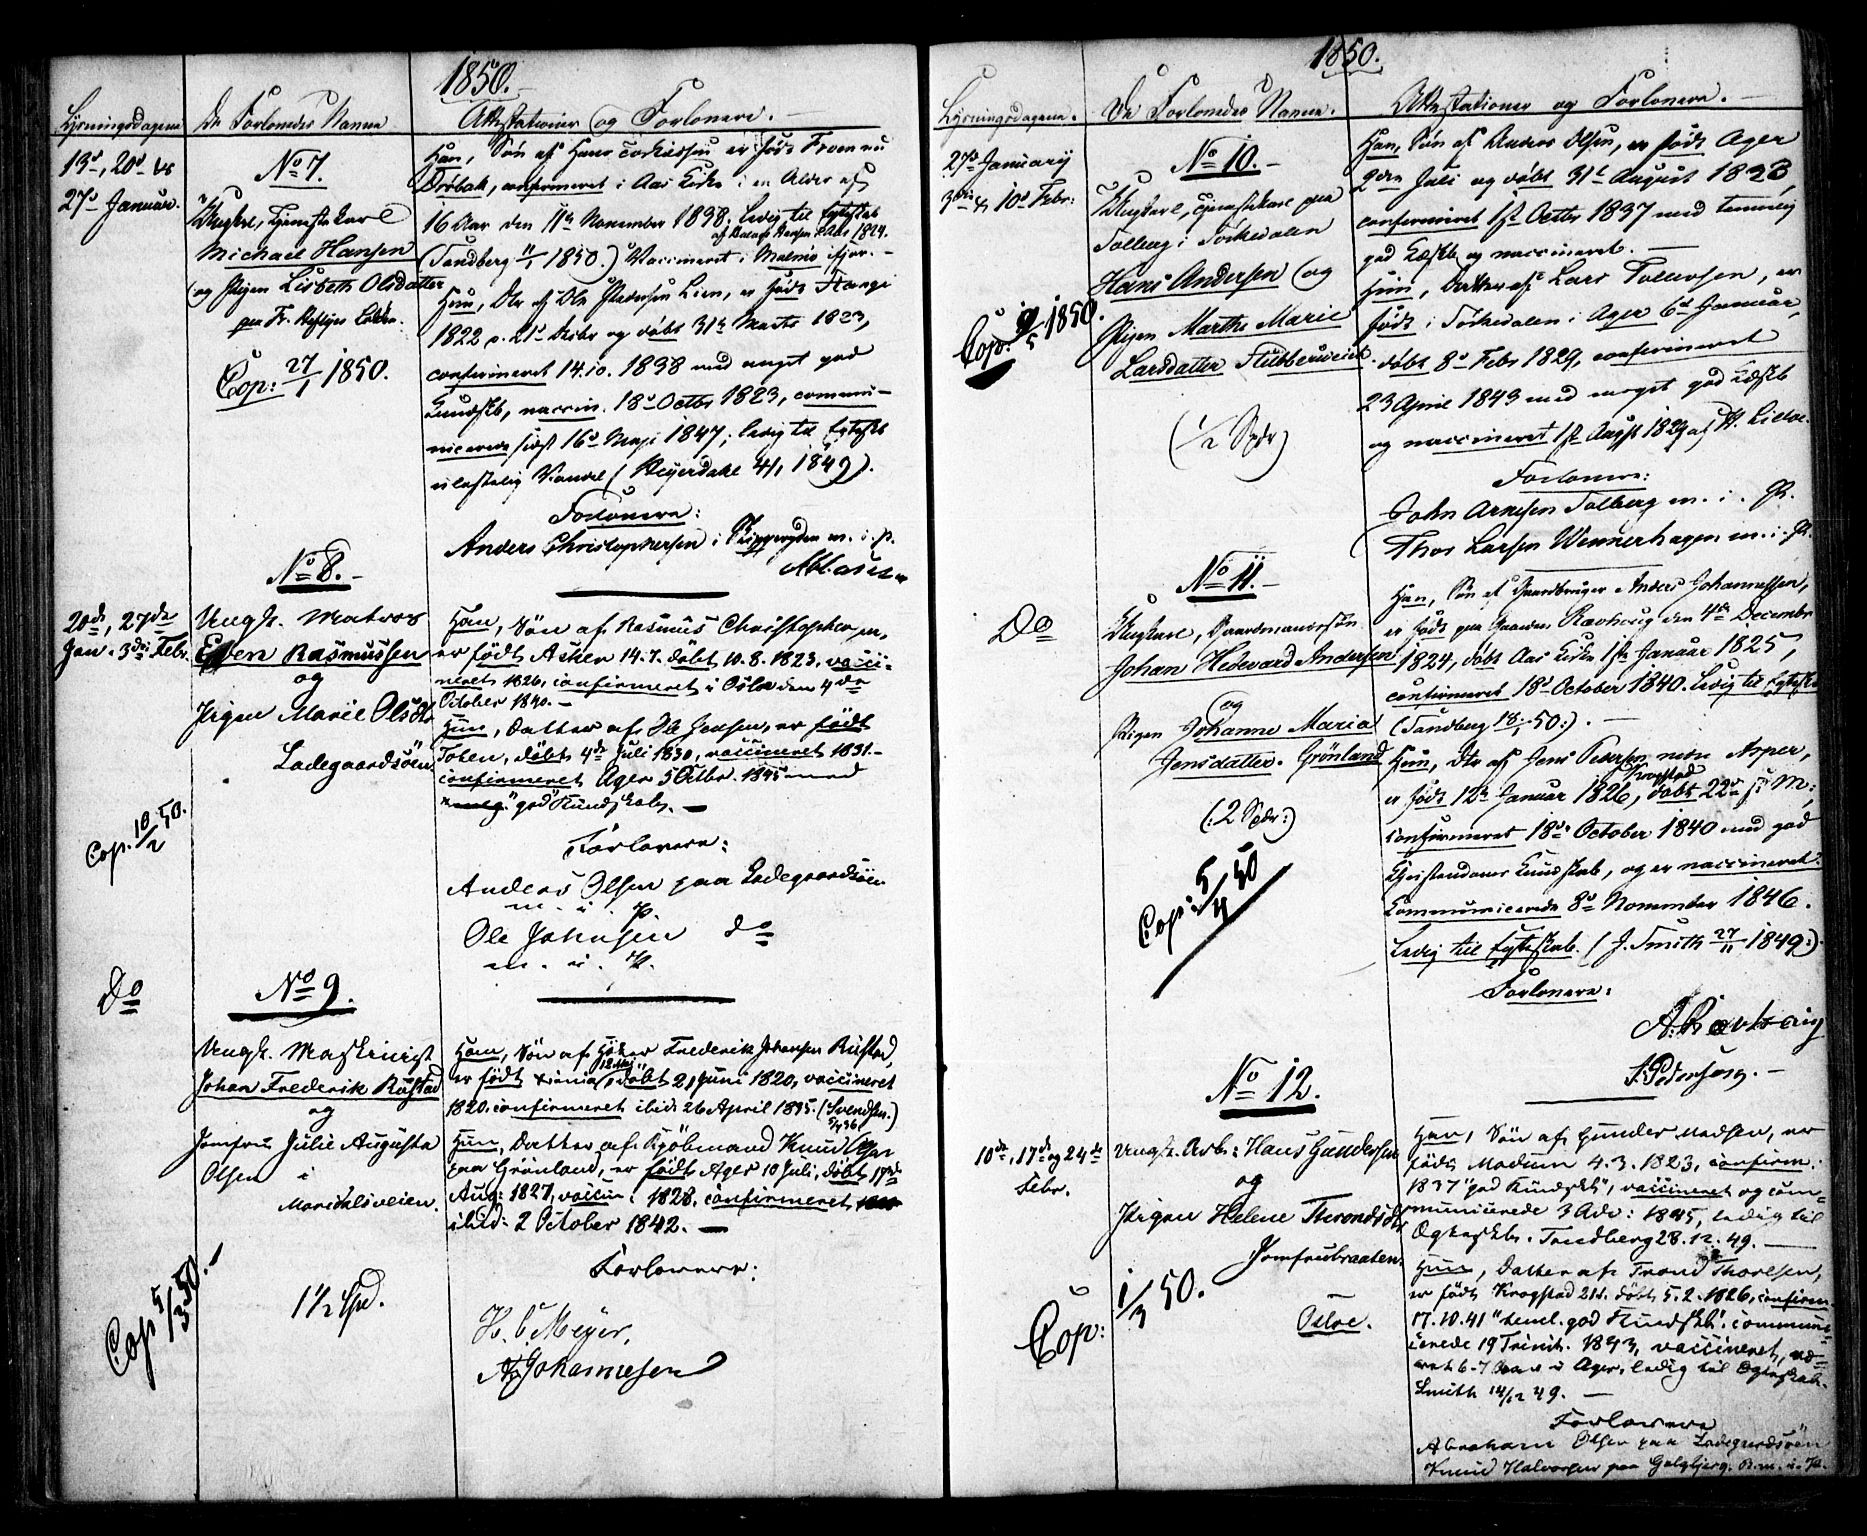 1850.
Lysningsdagene De Forlovedes Navne Attestationer og Forlovere.
13de, 20de &
27de Januar.
No 7.
Ungkarl, Tjenestekarl
Michael Hansen
og Pigen Lisbeth Olsdatter
Cop: 27/1 1850.
Han, Søn af Hans er født
Drøbak, confirmeret i Aas Kirke i en Alder af
16 Aar den 11te November 1838, ledig til Egteskab
(Sandberg 11/1 1850.) Vaccineret i
Hun, Dtr af Ole Pedersen Lien, er født
1822 d. 21de Decbr og døbt 31te Marts 1823,
confirmeret 14.10. 1838 med meget god
Kundskb, vaccin. 18de Octbr 1823, communi-
cerede sidst 16de Maji 1847; ledig til Egteskb
ulastelig Vandel (Heyerdahl 4/1 1849).
Forlovere:
Anders Christophersen i m. i. p.
No 8.
20de, 27de
Jan. 3die Febr.
Ungk. Matros
Even Rasmussen
og
Pigen Marie Olsdtr
Ladegaardsøen
Cop. 10/2 50.
Han, Søn af Rasmus Christophersen,
er født Asker 14.7. døbt 10.8.1823, vacci-
neret 1826, confirmeret i Oslo den 4de
October 1840. —
Hun, Datter af Ole Jensen, er født
Toten, døbt 4de Juli 1830, vaccineret 1831 —
confirmeret Ager 5 Octbr. 1845 med
god Kundskab. —
Forlovere:
Anders Olsen paa Ladegaardsøen
m. i. P.
Ole Johnsen do
m. i. P.
do
No 9.
Ungk. Maskinist
Johan Frederik Rustad
og
Jomfru Julie Augusta
Olsen i
Maridalsveien.
1 1/2 Spd.
Cop 5/3 50.
Han, Søn af Frederik Johansen Rustad,
er født døbt 21 Juni 1820, vaccineret
1820. confirmeret ibid: 26 April 1835. (Svendsen.)
Hun, Datter af Kjöbmand Knud Olsen
paa Grönland, er født Ager 10 Juli, døbt 17de
Aug: 1827, vaccin: 1828. confirmeret
ibid: 2 October 1842. —
Forlovere:
H. C. Meyer.
Johannesen
1850.
Lysningsdagene. De Forlovedes Navne. Attestationer og Forlovere.
27de Januar
3die & 10de Febr:
No 10.
Ungkarl, Tjenestekarl paa
Solberg i Sørkedalen
Hans Andersen og
Pigen Marthe Marie
Larsdatter
(1/2 Spdr)
Cop: 9/5 1850.
Han, Søn af Anders Olsen, er født Ager
2den Juli og døbt 31te August 1823,
confirmeret 1ste Octbr 1837 med temmelig
god Kdskb og vaccineret. —
Hun, Datter af Lars Tollevsen, er
født i Sørkedalen i Ager 6te Januar,
døbt 8de Febr 1829, confirmeret
23 April 1843 med meget god Kdskb
og vaccineret 1ste Augst 1829 af
Forlovere:
John Arnesen Solberg m. i. P.
Thor Larsen Wennerhagen m. i. P.
Do
No 11.
Ungkarl, Gaardmandssøn
Johan Hedevard Andersen
og
Pigen Johanne Maria
Jensdatter. Grönland
(: 2 Spdr:)
Cop: 5/4 50
Han, Søn af Gaardbruger Anders Johannessen,
er født paa Gaarden Ravhoug den 4de December
1824, døbt Aas Kirke 1ste Januar 1825,
confirmeret 18de October 1840. Ledig til Egteskb
(Sandberg 18/1 50:). —
Hun, Dtr af Jens Pedersen nedre Asper,
Krogstad
er født 12te Januar 1826, døbt 22de s: M:,
confirmeret 18de October 1840 med god
Christendoms Kundskab, og er vaccineret.
Communicerede 8de November 1846.
Ledig til Egteskab. (J. Smith 27/11 1849:).
Forlovere:
A. Ravhoug
J. Pedersen. —
No 12.
10de, 17de og 24de
Febr.
Ungk. Arb: Hans Gundersen
og
Pigen Helene Throndsdtr
Jomfrubraaten
Osloe.
Cop: 1/3 50.
Han, Søn af Gunder Madsen, er
født Modum 4.3.1823, confirm.
1837 "god Kundskb", vaccineret og com-
municerede 3 Adv: 1845, ledig til
Ægteskb. Sandberg 28.12.49. —
Hun, Datter af Trond Thoresen,
er født Krogstad 21.1. døbt 5.2.1826, confirm.
17.10.41 "teml. god Kundskb". communi-
cerede 19 Trinit. 1843, vaccineret,
i Ager, ledig til Ægteskab.
Smith 14/12 49. —
Forlovere
Abraham Olsen paa Ladegaardsøen
Knud Halvorsen paa Galgbjerg. B.m.i.P.